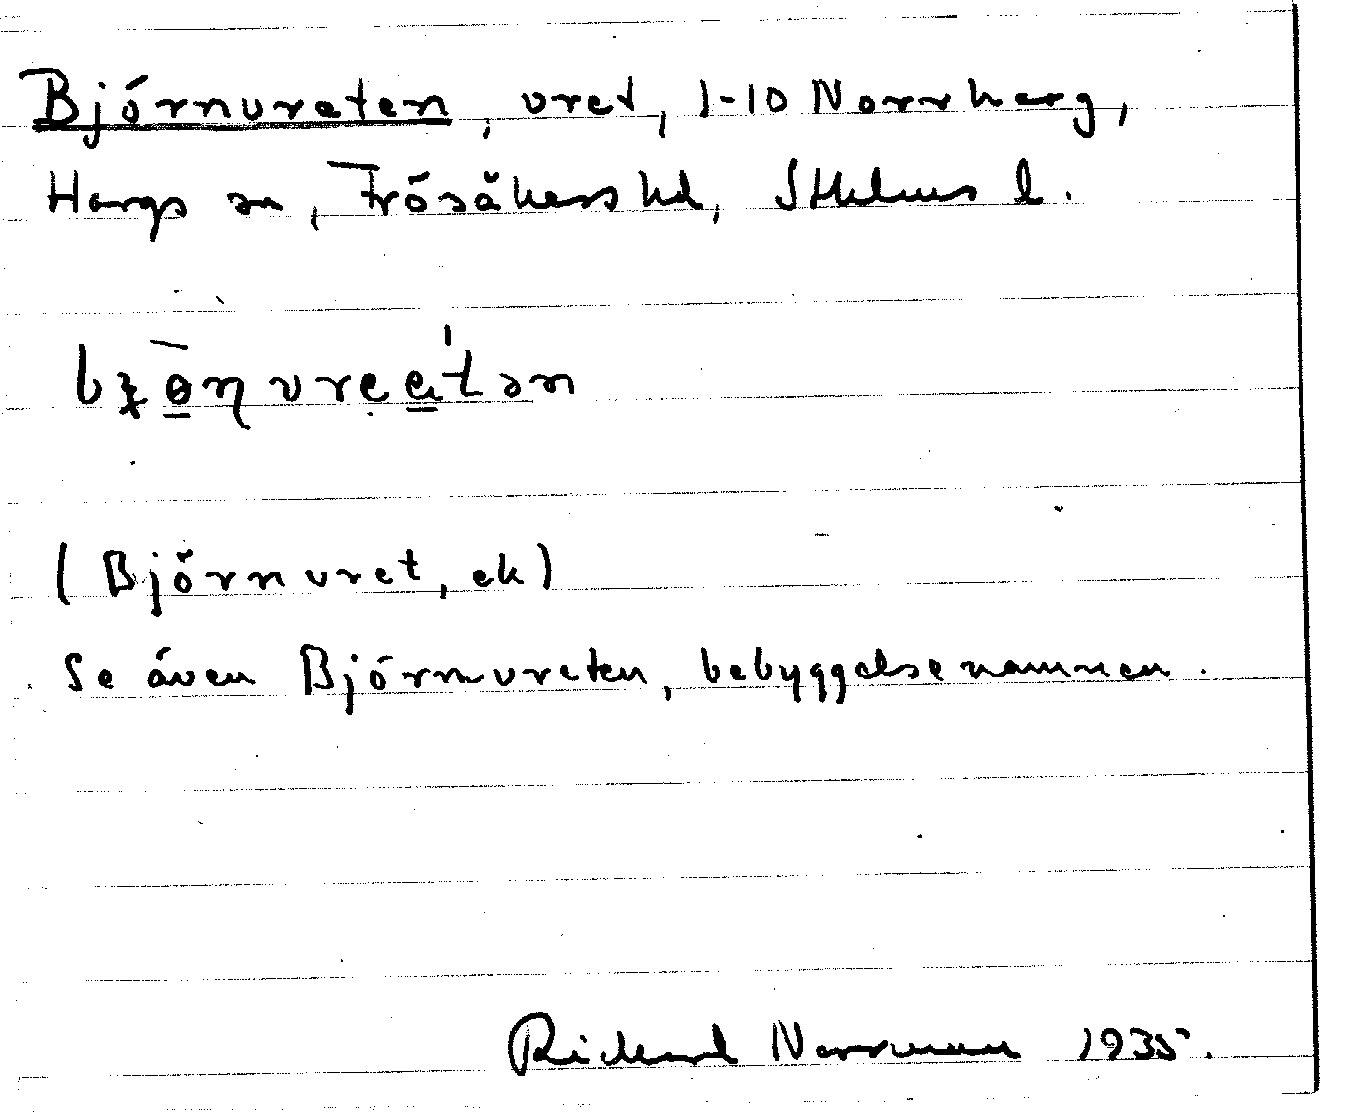 Björnvreten, vret, 1-10 Norrharg,
Hargs sn, Frösåkers hd, Sthlms l.
(Björnvret, ek)
Se även Björnvreten, bebyggelsenamnen.
Richard Norrman 1935.